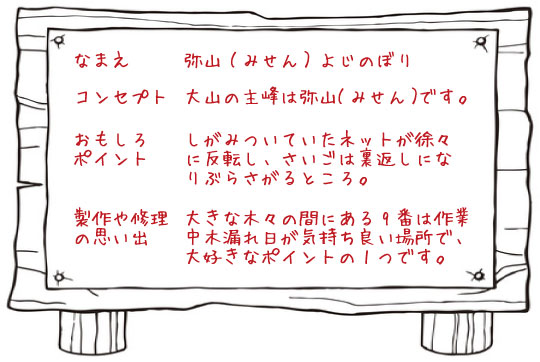 なまえ 弥山(みせん)よじのぼり
コンセプト 大山の主峰は弥山(みせん)です。
おもしろ しがみついていたネットが徐々
ポイント に反転し、さいごは裏返しにな
りぶらさがるところ。
製作や修理 大きな木々の間にある9番は作業
の思い出 中木漏れ日が気持ち良い場所で、
大好きなポイントの1つです。